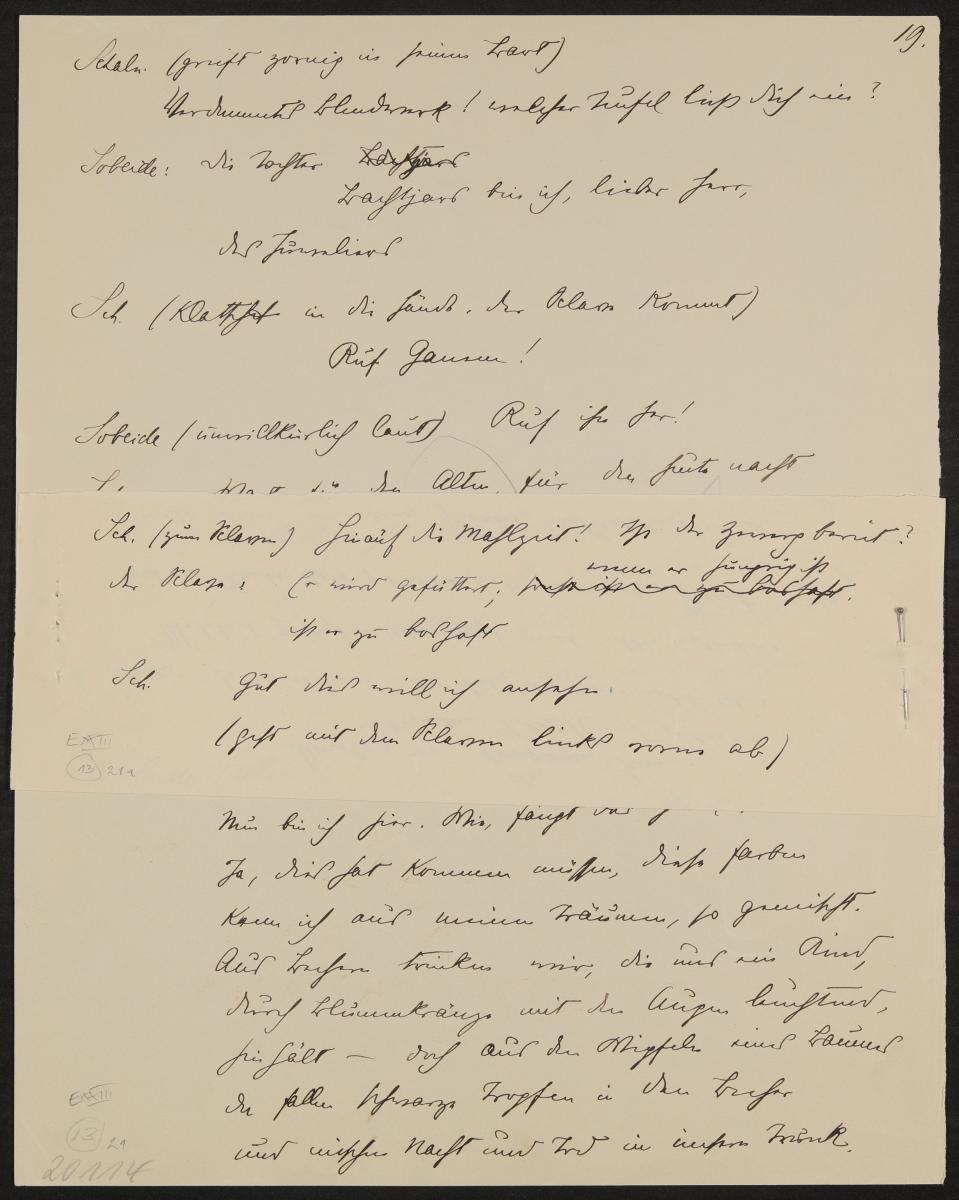 19.
Schaln. (greift zornig in seinen Bart)
Verdammtes Blendwerk! welcher Teufel ließ dich ein?
Sobeide: die Tochter Bachtjars
Bachtjars bin ich, lieber Herr,
des Juweliers
Sch. (klatscht in die Hände. der Sclave kommt)
Ruf Gansem!
Sobeide (unwillkürlich laut) Ruf ihn her!
den Alten, für den heute nacht
Sch. (zum Sclaven) hinauf die Mahlzeit! Ist der Zwerg bereit?
wenn er hungrig ist
der Sclave: Er wird gefüttert; sonst ist er zu boshaft.
ist er zu boshaft
Sch. Gut dies will ich ansehn.
(geht mit dem Sclaven links vorne ab)
EAXIII
13 21a
Nun bin ich hier. Wie, fängt das
Ja, dies hat kommen müssen, diese Farben
kenn ich aus meinen Träumen, so gemischt.
Aus Bechern trinken wir, die uns ein Kind,
durch Blumenkränze mit den Augen leuchtend,
hinhält – doch aus den Wipfeln eines Baumes
da fallen schwarze Tropfen in den Becher
und mischen Nacht und Tod in unsern Trunk.
EAXIII
13 21
20114